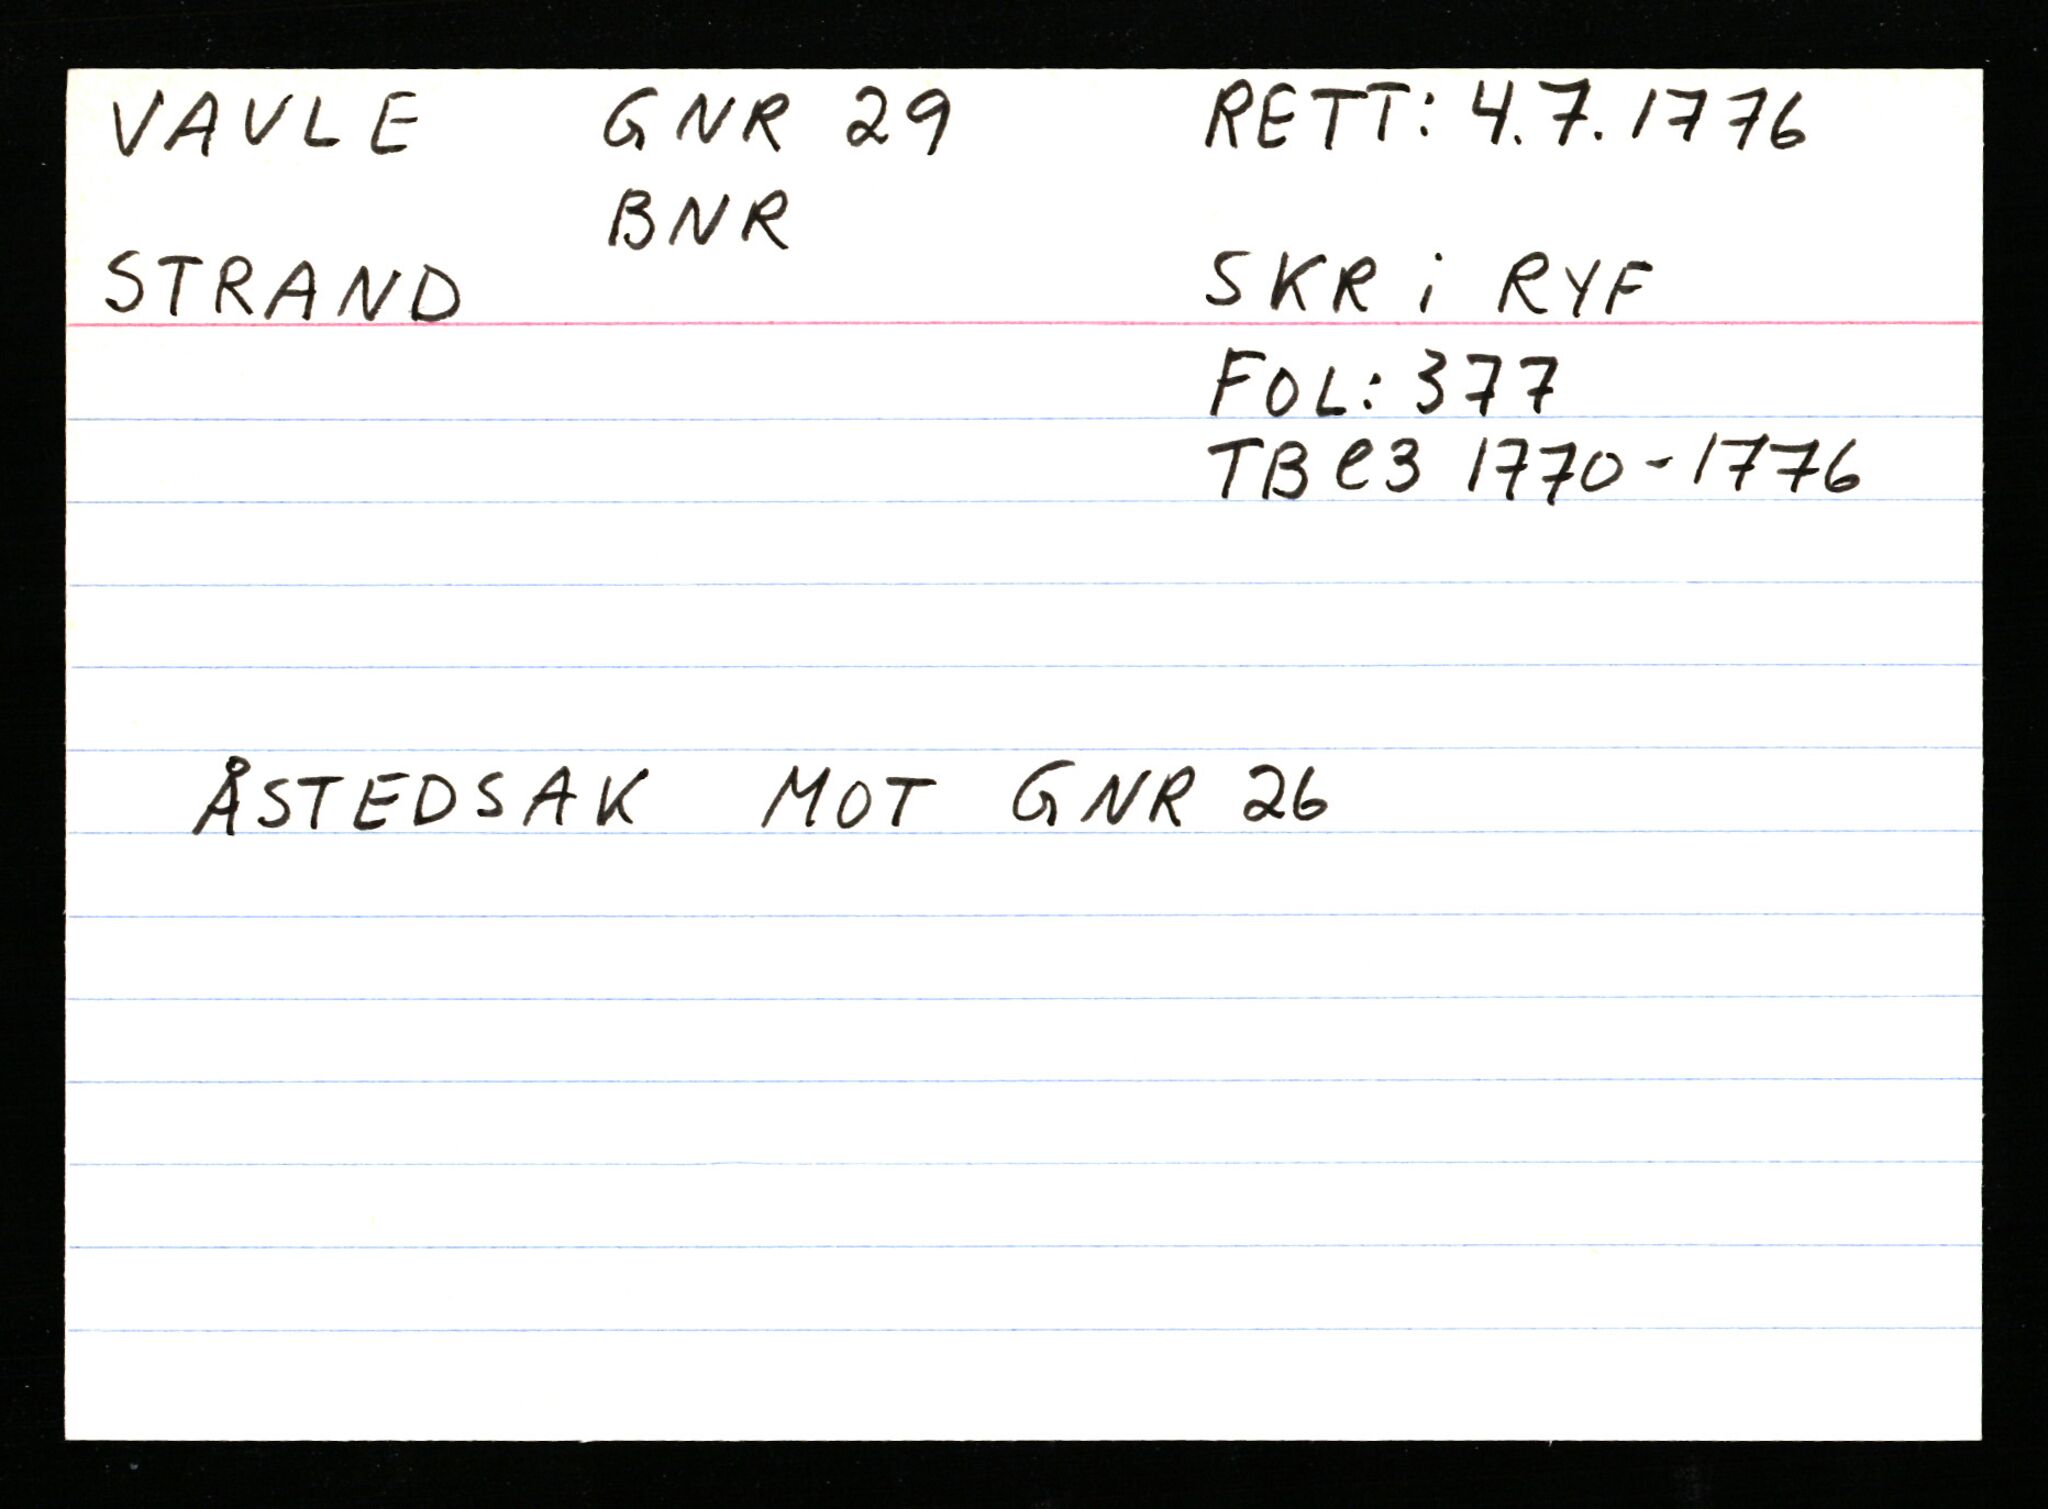 VAVLE GNR 29 RETT: 4.7.1776
BNR
STRAND SKR i RYF
FOL: 377
TB C3 1770-1776
ÅSTEDSAK MOT GNR 26